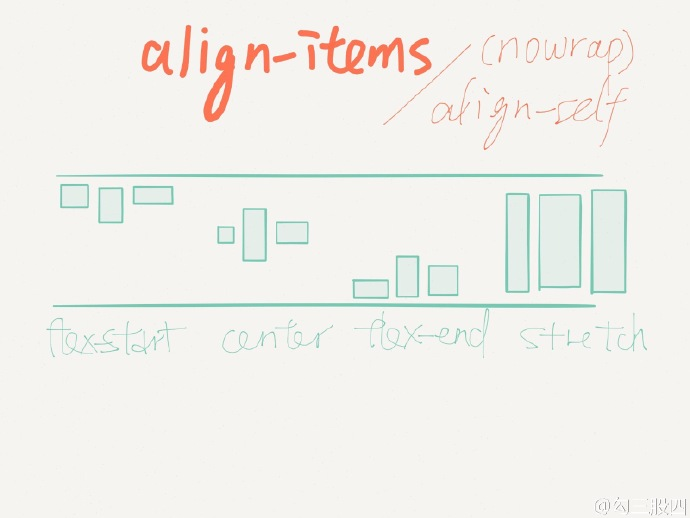 align-items
(nowrap)
/ align-self
flex-start center flex-end stretch
@勾三股四